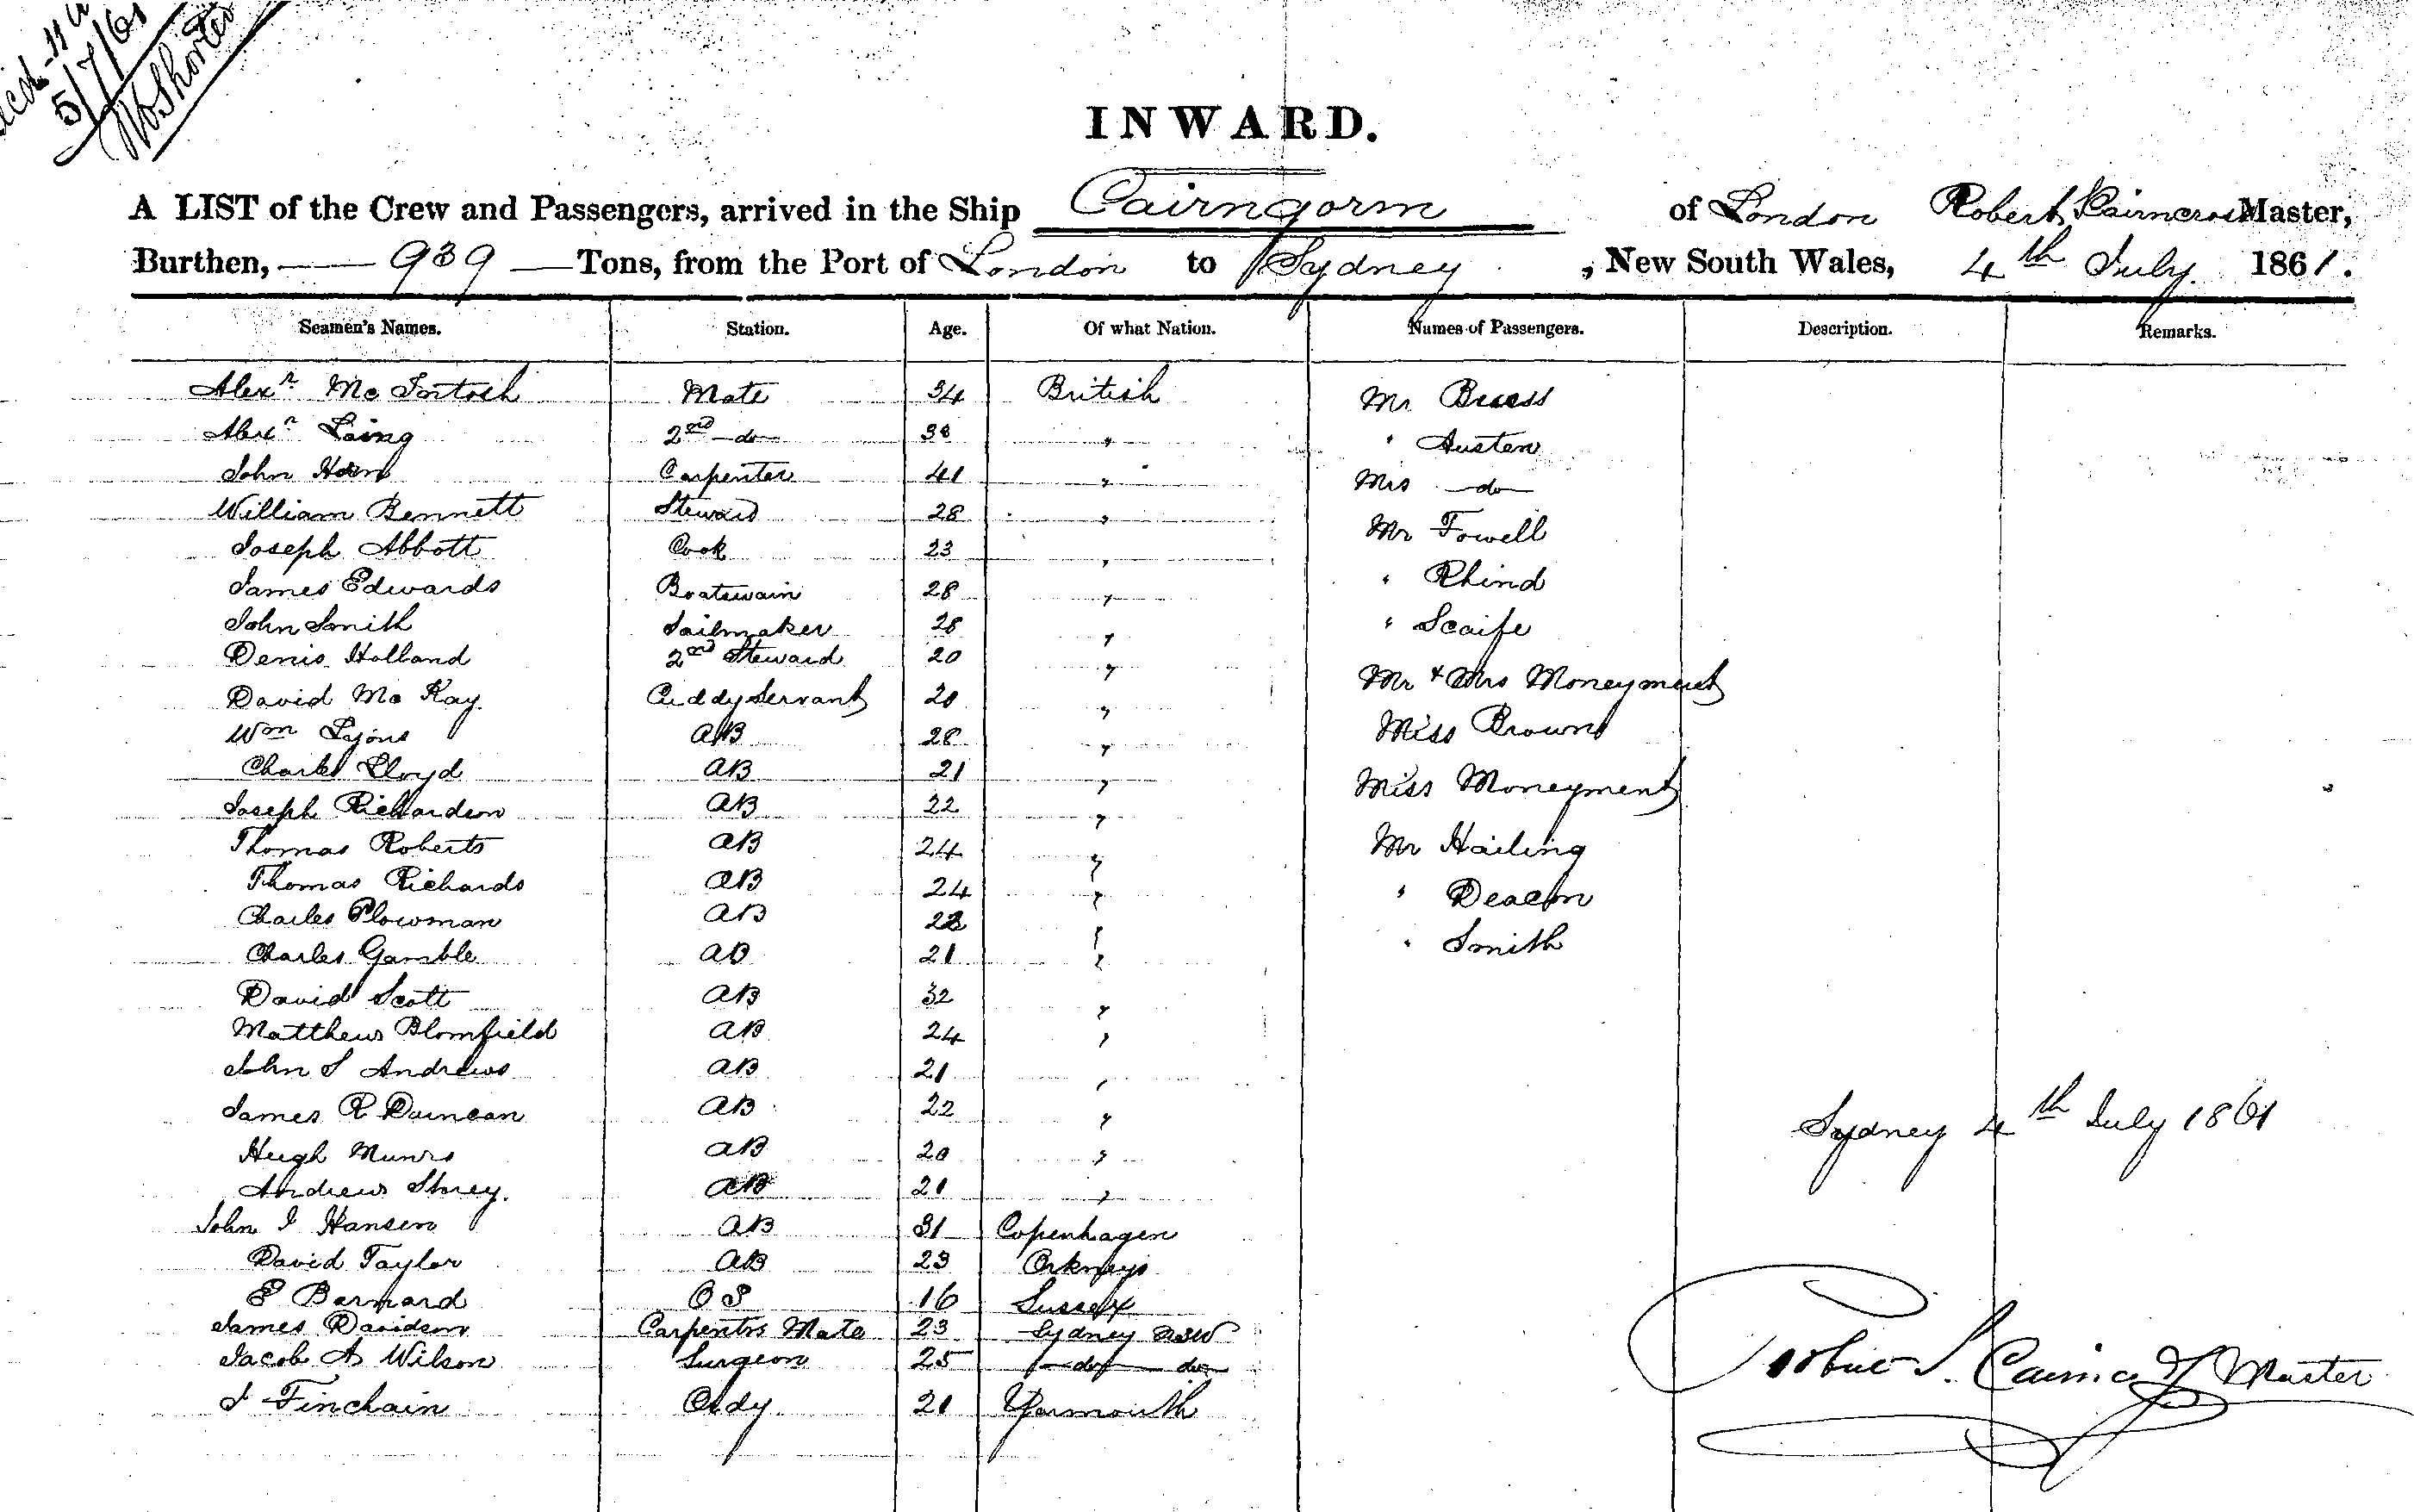 5/7/61
INWARD.
A LIST of the Crew and Passengers, arrived in the Ship Cairngorm of London Robert Cairncross Master,
Burthen, 939 Tons, from the Port of London to Sydney, New South Wales, 4th July 1861.
Seamen's Names. Station. Age. Of what Nation. Names of Passengers. Description. Remarks.
Alexr McIntosh Mate 34 British Mr
Alexr Laing 2nd do 38 " " Austen
John Carpenter 41 " Mrs do
William Bennett Steward 28 " Mr Fowell
Joseph Abbott Cook 23 " " Rhind
James Edwards Boatswain 28 " " Scaife
John Smith Sailmaker 28 "
Denis Holland 2nd Steward 20 " Mr & Mrs Moneyment
David McKay Cuddy Servant 20 " Miss Brown
Wm Lyons AB 28 "
Charles Lloyd AB 21 " Miss Moneyment
Joseph Richardson AB 22 "
Thomas Roberts AB 24 " Mr Hailing
Thomas Richards AB 24 " " Deacon
Charles Plowman AB 22 " " Smith
Charles Gamble AB 21 "
David Scott AB 32 "
Matthew Blomfield AB 24 "
John S Andrews AB 21 "
James R Duncan AB 22 " Sydney 4th July 1861
Hugh Munro AB 20 "
Andrew Storey. AB 21 "
John I Hansen AB 31 Copenhagen
David Taylor AB 23 Orkneys
E Barnard OS 16 Sussex
James Davidson Carpentrs Mate 23 Sydney NSW
Jacob A Wilson Surgeon 25 do do Master
J Finchain Ordy 21 Yarmouth